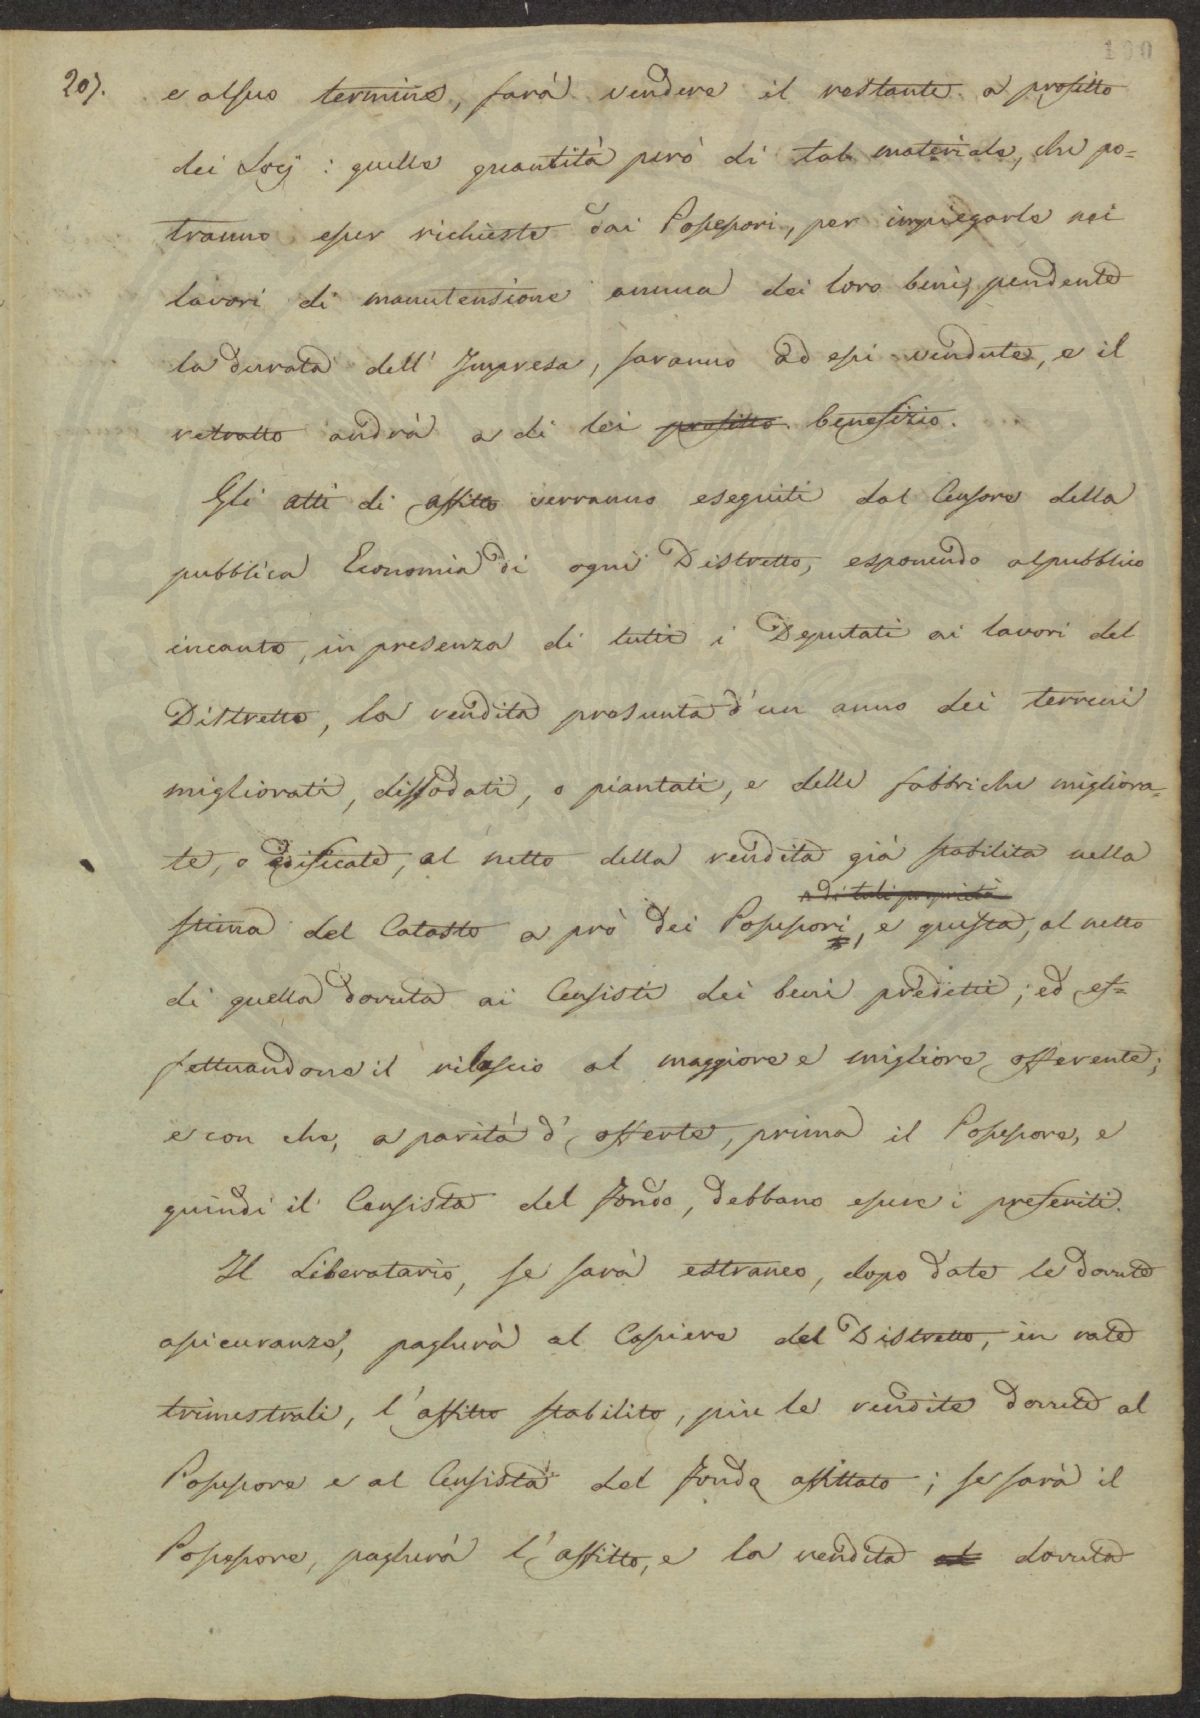 190
207.
e al suo termine, farà vendere il restante a profitto
dei Socj: quelle quantità però di tale materiale, che po=
tranno esser richieste dai Possessori, per impiegarle nei
lavori di manutensione annua dei loro beni, pendente
la durata dell'Impresa, saranno ad essi vendute, e il
retratto andrà a di lei profitto benefizio.
Gli atti di affitto verranno eseguiti dal Censore della
pubblica Economia di ogni Distretto, esponendo al pubblico
incanto, in presenza di tutti i Deputati ai lavori del
Distretto, la rendita presunta d'un anno dei terreni
migliorati, dissodati, o piantati, e delle fabbriche migliora=
te, o edificate, al netto della rendita già stabilita nella
e di tali proprietà
stima del Catasto a prò dei Possessori, e questa, al netto
di quella dovuta ai Censisti dei beni predetti; ed ef=
fettuandone il rilascio al maggiore e migliore offerente;
e con che, a parità d'offerte, prima il Possessore, e
quindi il Censista del fondo, debbano essere i preferiti.
Il Liberatario, se sarà estraneo, dopo date le dovute
assicuranze, pagherà al Cassiere del Distretto, in rate
trimestrali, l'affitto stabilito, più le rendite dovute al
Possessore e al Censista del fondo affittato; se sarà il
Possessore, pagherà l'affitto, e la rendita al dovuta